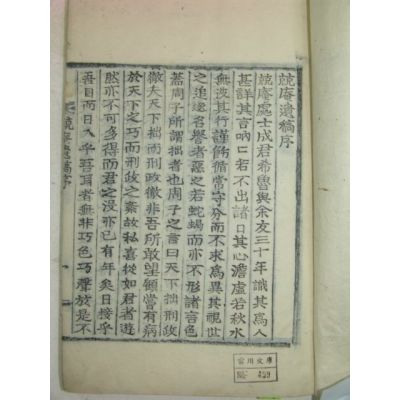 兢庵遺稿序
兢庵處士成君希魯與余友三十年識其爲人
甚詳其言吶口若不出諸口其心澹虛若秋水
無波其行謹飭循當守分而不求爲異其視世
之追逐名譽者惡之若蛇蝎而亦不形諸言色
蓋周子所謂拙者也周子之言曰天下拙刑政
徹夫天下拙而刑政徹非吾所敢望顧嘗有病
於天下之巧而刑政之紊故私喜從如君者遊
然亦不可多得而君之沒亦已有年矣日接乎
吾目而日入乎吾耳者無非巧色巧聲於是不
兢庵遺稿序
一
雷川文庫
429